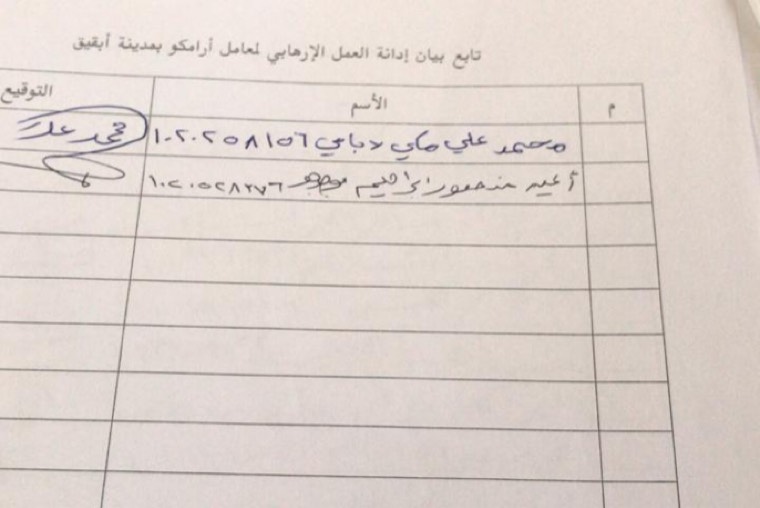 تابع بيان إدانة العمل الإرهابي لمعامل أرامكو بمدينة أبقيق
م الأسم التوقيع
محمد علي مكي دبابي ١٠٢٠٢٥٨١٥٦ محمد علي
منصور ابراهيم